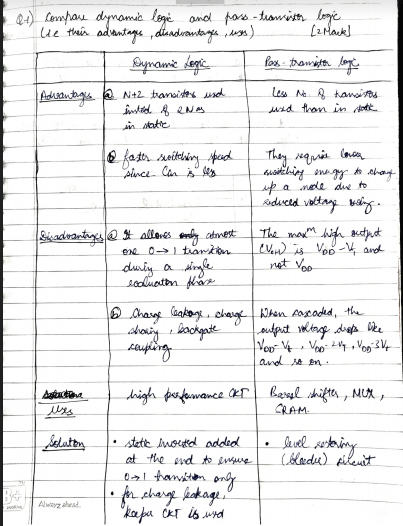 Q.1) Compare dynamic logic and pass-transistor logic
(i.e their advantages, disadvantages, uses) [2 Mark]
Dynamic Logic
Pass-transistor logic
Advantages
(a) N+2 transistors used
instead of 2N as
in static
Less No. of transistors
used than in static
(b) faster switching speed
since Cin is less
They require lower
switching energy to charge
up a node due to
reduced voltage swing.
Disadvantages
(a) It allows only atmost
one 0→1 transition
during a single
evaluation phase
The maxm high output
(VOH) is VDD-Vt and
not VDD
(b) Charge leakage, charge
sharing, backgate
coupling
When cascaded, the
output voltage drops like
VDD-Vt, VDD-2VT, VDD-3Vt
and so on.
Uses
high performance CKT
Barrel shifter, MUX,
SRAM.
Solution
• static inverted added
at the end to ensure
0→1 transition only
• for charge leakage,
keeper CKT is used
• level restoring
(bleeder) circuit
Always ahead.